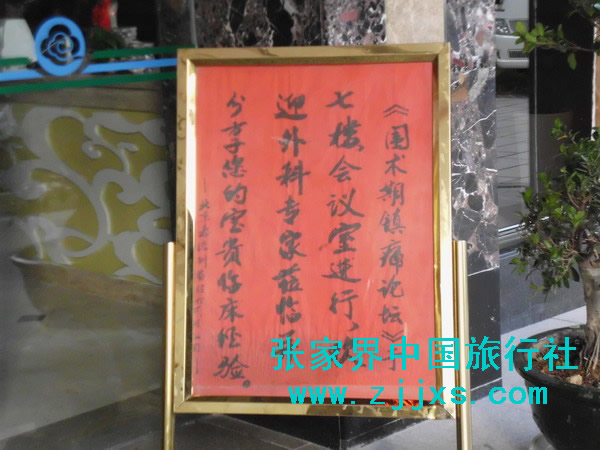 《围术期镇痛论坛》
七楼会议室进行
迎外科专家莅临
分享您的宝贵临床经验。
张家界中国旅行社
www.zjjxs.com